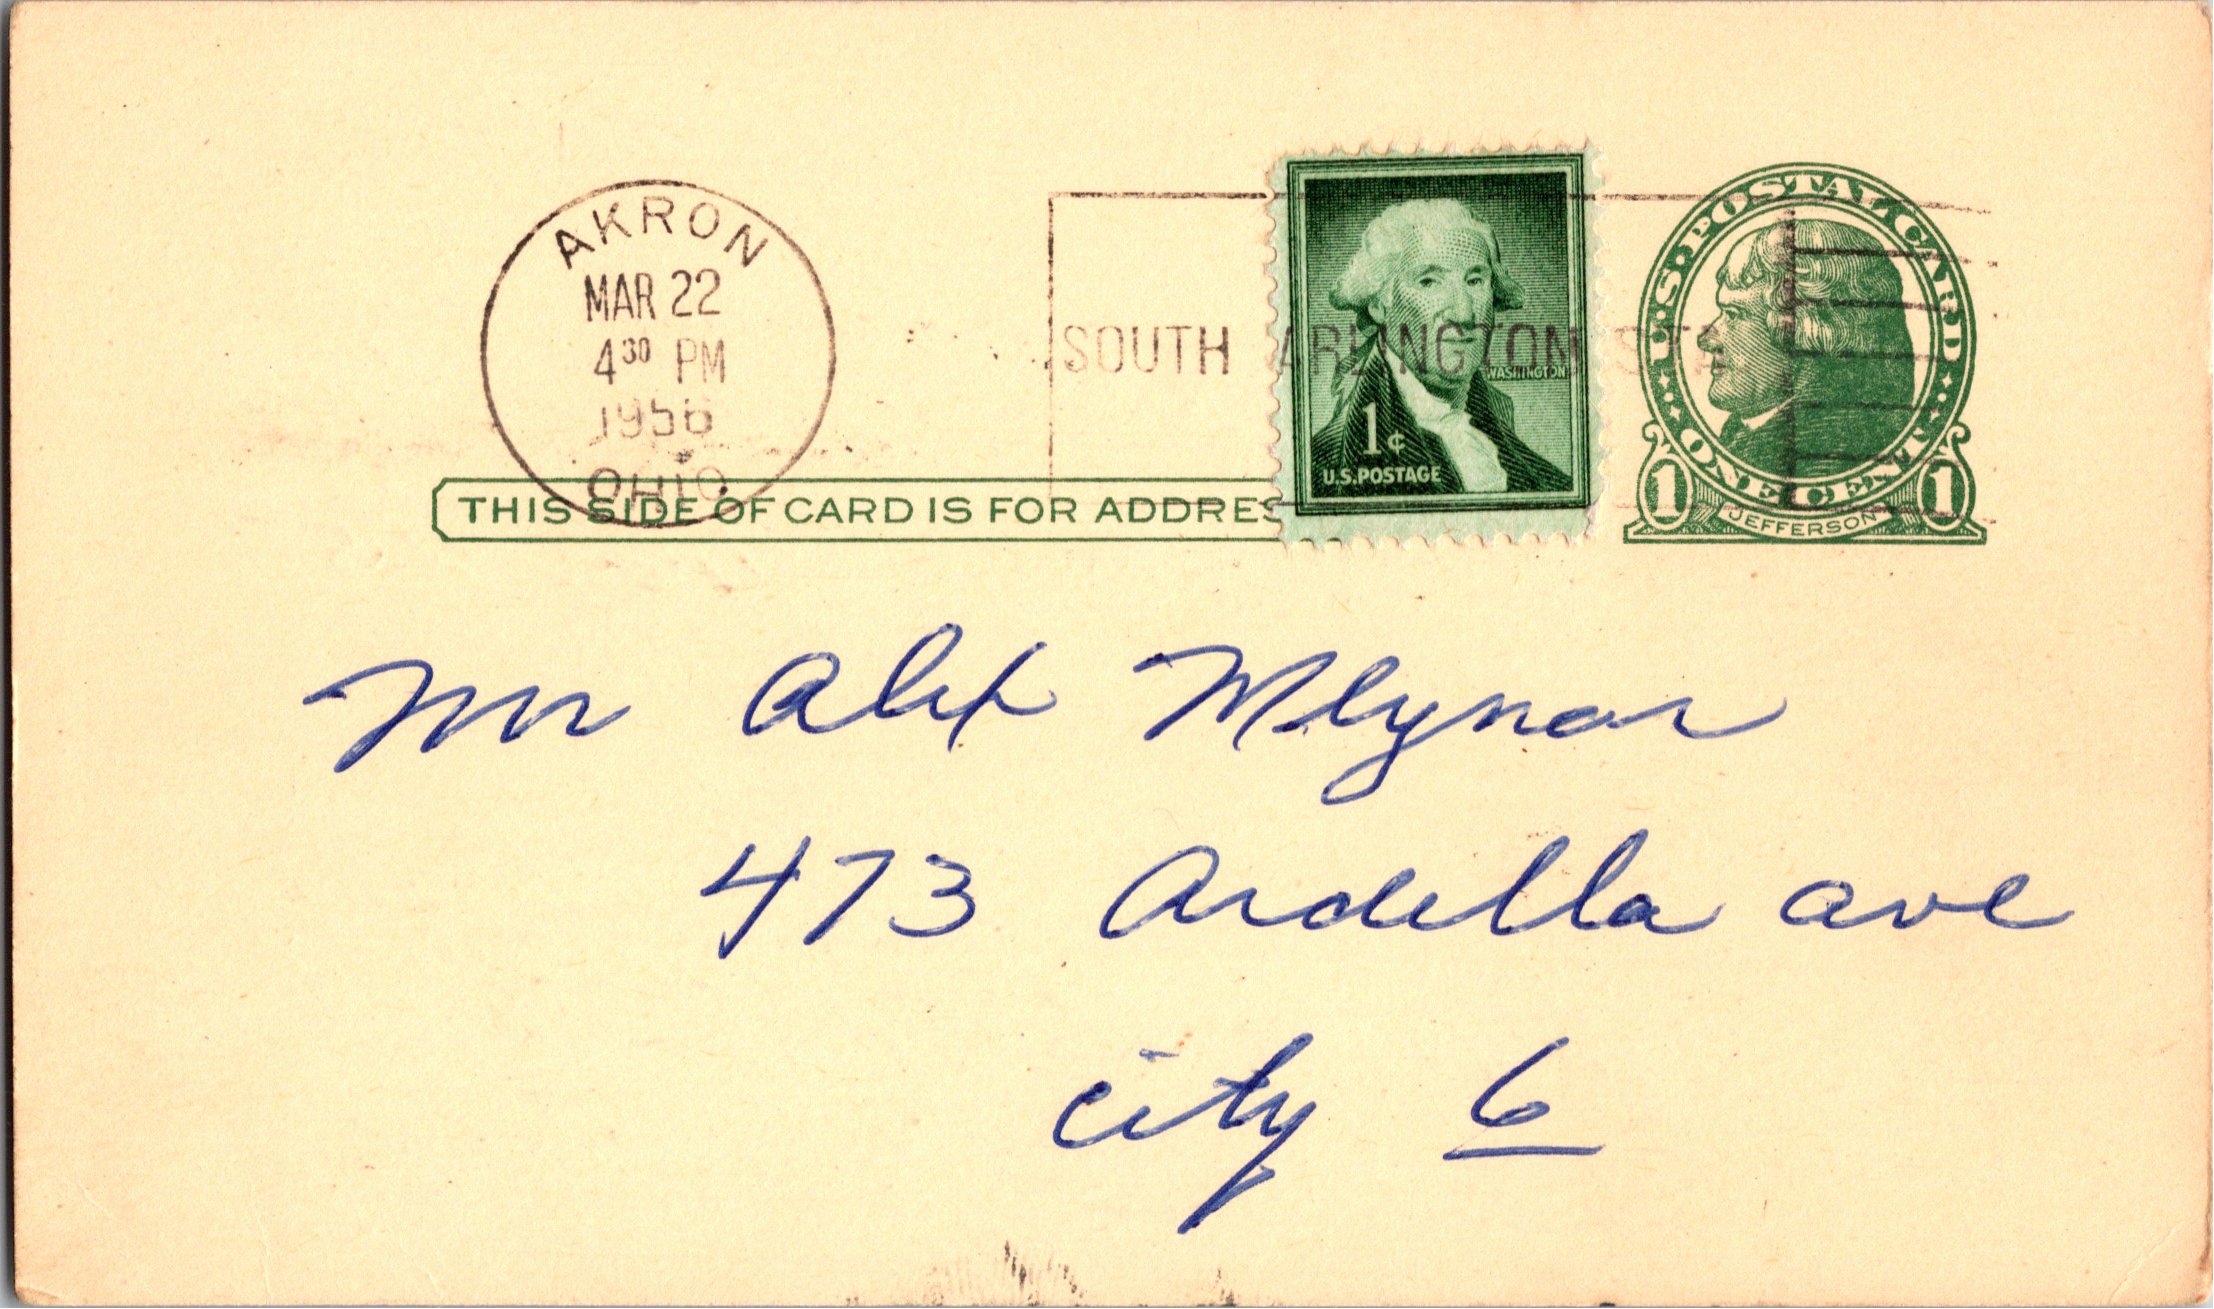 AKRON
MAR 22
4³⁰ PM
1956
OHIO
SOUTH ARLINGTON STA
WASHINGTON
1¢
U.S. POSTAGE
U.S. POSTAL CARD
ONE CENT
1 JEFFERSON 1
THIS SIDE OF CARD IS FOR ADDRES
Mr Alex Mlynar
473 Ardella ave
City 6